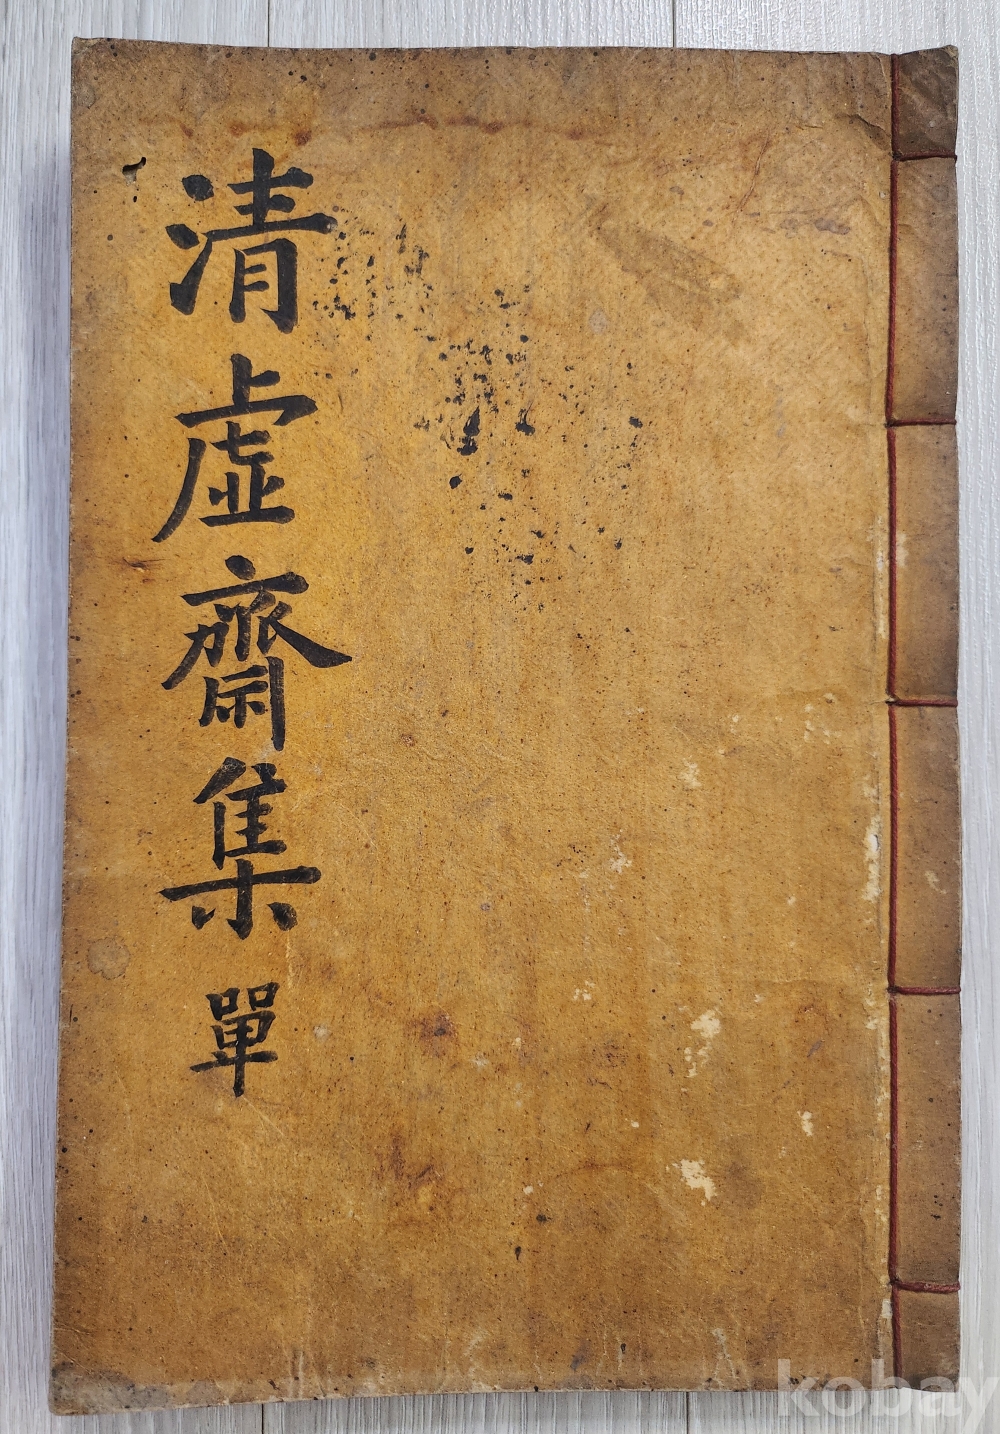 清虛齋集 單
kobay